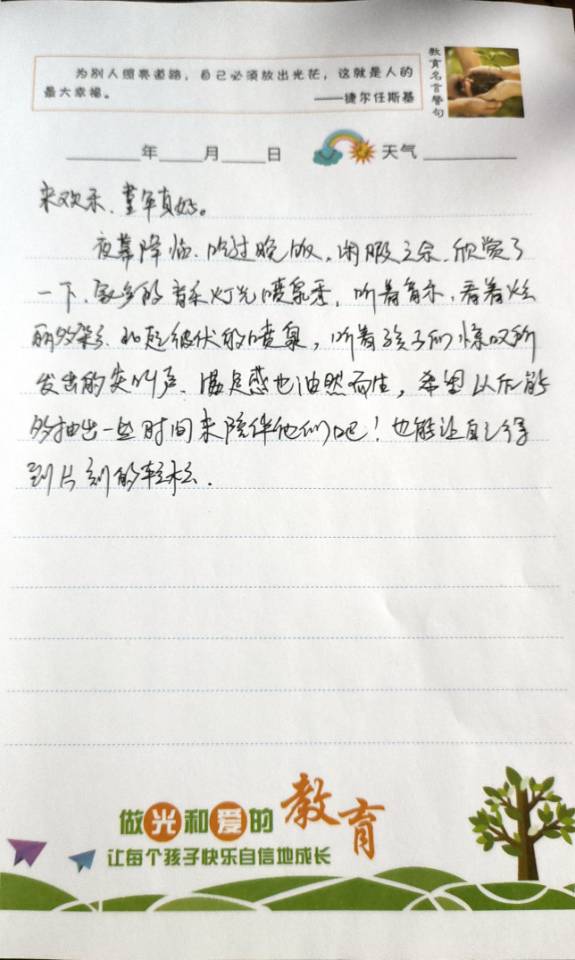 为别人照亮道路，自己必须放出光芒，这就是人的
最大幸福。
——捷尔任斯基
教育名言警句
年 月 日 天气
来欢乐、童年真好。
夜幕降临、吃过晚饭，闲暇之余、欣赏了
一下、家乡的音乐灯光喷泉秀，听着音乐，看着炫
丽多彩、此起彼伏的喷泉，听着孩子们惊叹所
发出的尖叫声、满足感也油然而生，希望以后能
够抽出一些时间来陪伴他们吧！也能让自己得
到片刻的轻松.
做光和爱的教育
让每个孩子快乐自信地成长